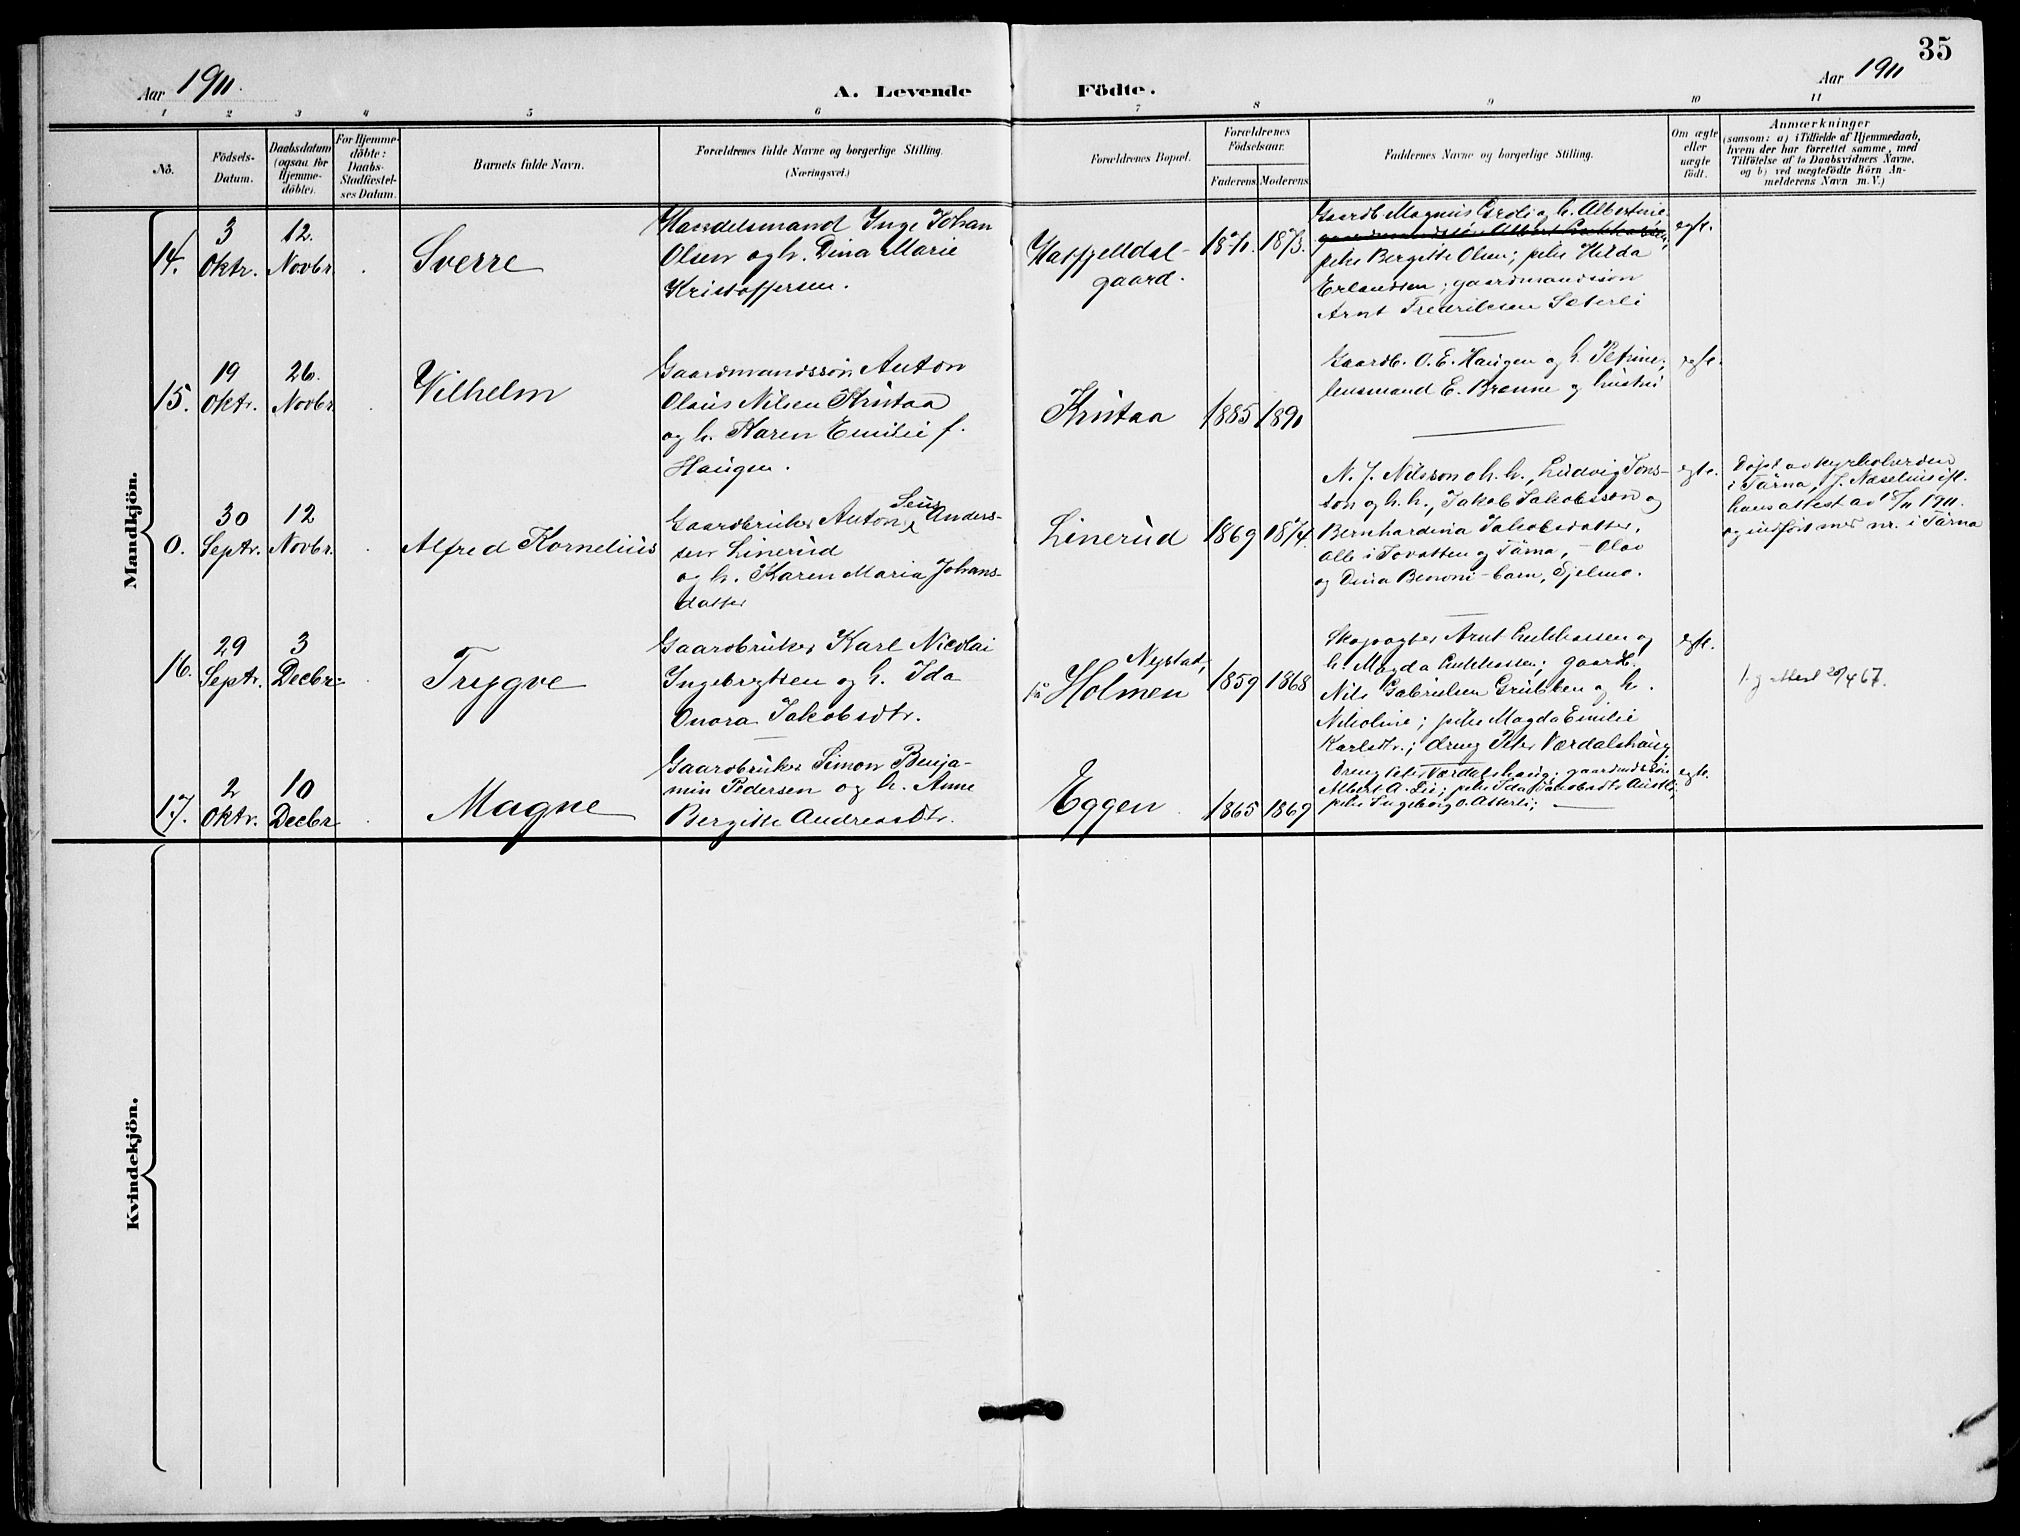 35
Aar 1911.
A. Levende Födte.
Aar 1911
1 2 3 4 5 6 7 8 9 10 11
No.
Födsels-
Datum.
Daabsdatum
(ogsaa for
Hjemme-
döbte).
For Hjemme-
döbte:
Daabs-
Stadfæstel-
ses Datum.
Barnets fulde Navn.
Forældrenes fulde Navne og borgerlige Stilling.
(Næringsvei.)
Forældrenes Bopæl.
Forældrenes
Födselsaar.
Faderens Moderens
Faddernes Navne og borgerlige Stilling.
Om ægte
eller
uægte
födt.
Anmærkninger
(saasom: a) i Tilfælde af Hjemmedaab,
hvem der har forrettet samme, med
Tilföielse af to Daabsvidners Navne,
og b) ved uægtefödte Börn An-
melderens Navn m. V.)
Mandkjön.
14.
3
Oktr.
12.
Novbr.
Sverre
Handelsmand Inge Johan
Olsen og h. Dina Marie
Kristoffersen.
Hatfjelldal-
gaard.
1871. 1873.
Gaardb. Magnus og h. Albertine
pike Bergitte Olsen; pike Hilda
Erlandsen; gaardmandssøn
Arnt Fredriksen Sæterli
egte.
15.
19
Oktr.
26.
Novbr.
Vilhelm
Gaardmandssøn Anton
Olaus Nilsen Krutaa
og h. Karen Emilie f.
Haugen.
Krutaa
1885 1891
Gaardb. O. E. Haugen og h. Petrine;
lensmand E. Brænne og hustru
egte.
0.
30
Septr.
12
Novbr.
Alfred Kornelius
Gaardbruker Anton Seus Anders-
sen Linerud
og h. Karen Maria Johans-
datter
Linerud
1869 1874.
N. J. Nilsson o h. h., Ludvig Jons-
son og h. h., Jakob Jakobsson og
Bernhardina Jakobsdatter,
alle i Jovatten og Tärna, – Olav
og Dina Benoni-barn, Sjelmo.
egte.
Døpt av kyrkoherden
i Tärna, J. Næselius ifl.
hans attest av 18/11 1911.
og indført med nr. i Tärna
16.
29
Septr.
3
Decbr.
Trygve
Gaardbruker Karl Nicolai
Ingebrgtsen og h. Ida
Onora Jakobsdtr.
Nystad,
paa Holmen
1859 1868
Skogvogter Arnt Lukkassen og
h. Magda Lukkassen; gaardb.
Nils Gabrielsen Grubben og h.
Nikoline; pike Magda Emilie
Karlsdtr.; dreng Peter Værdalshaug
egte.
attest 20/4 67.
17.
2
Oktr.
10
Decbr.
Magne
Gaardbruker Simon Benja-
min Pedersen og h. Anne
Bergitte Andreasdtr.
Eggen
1865 1869
Dreng Peter Værdalshaug; gaardmdssøn
Albert A. Lie; pike Ida Jakobsdtr.
pike Ingeborg O. Atterli;
egte.
Kvindekjön.